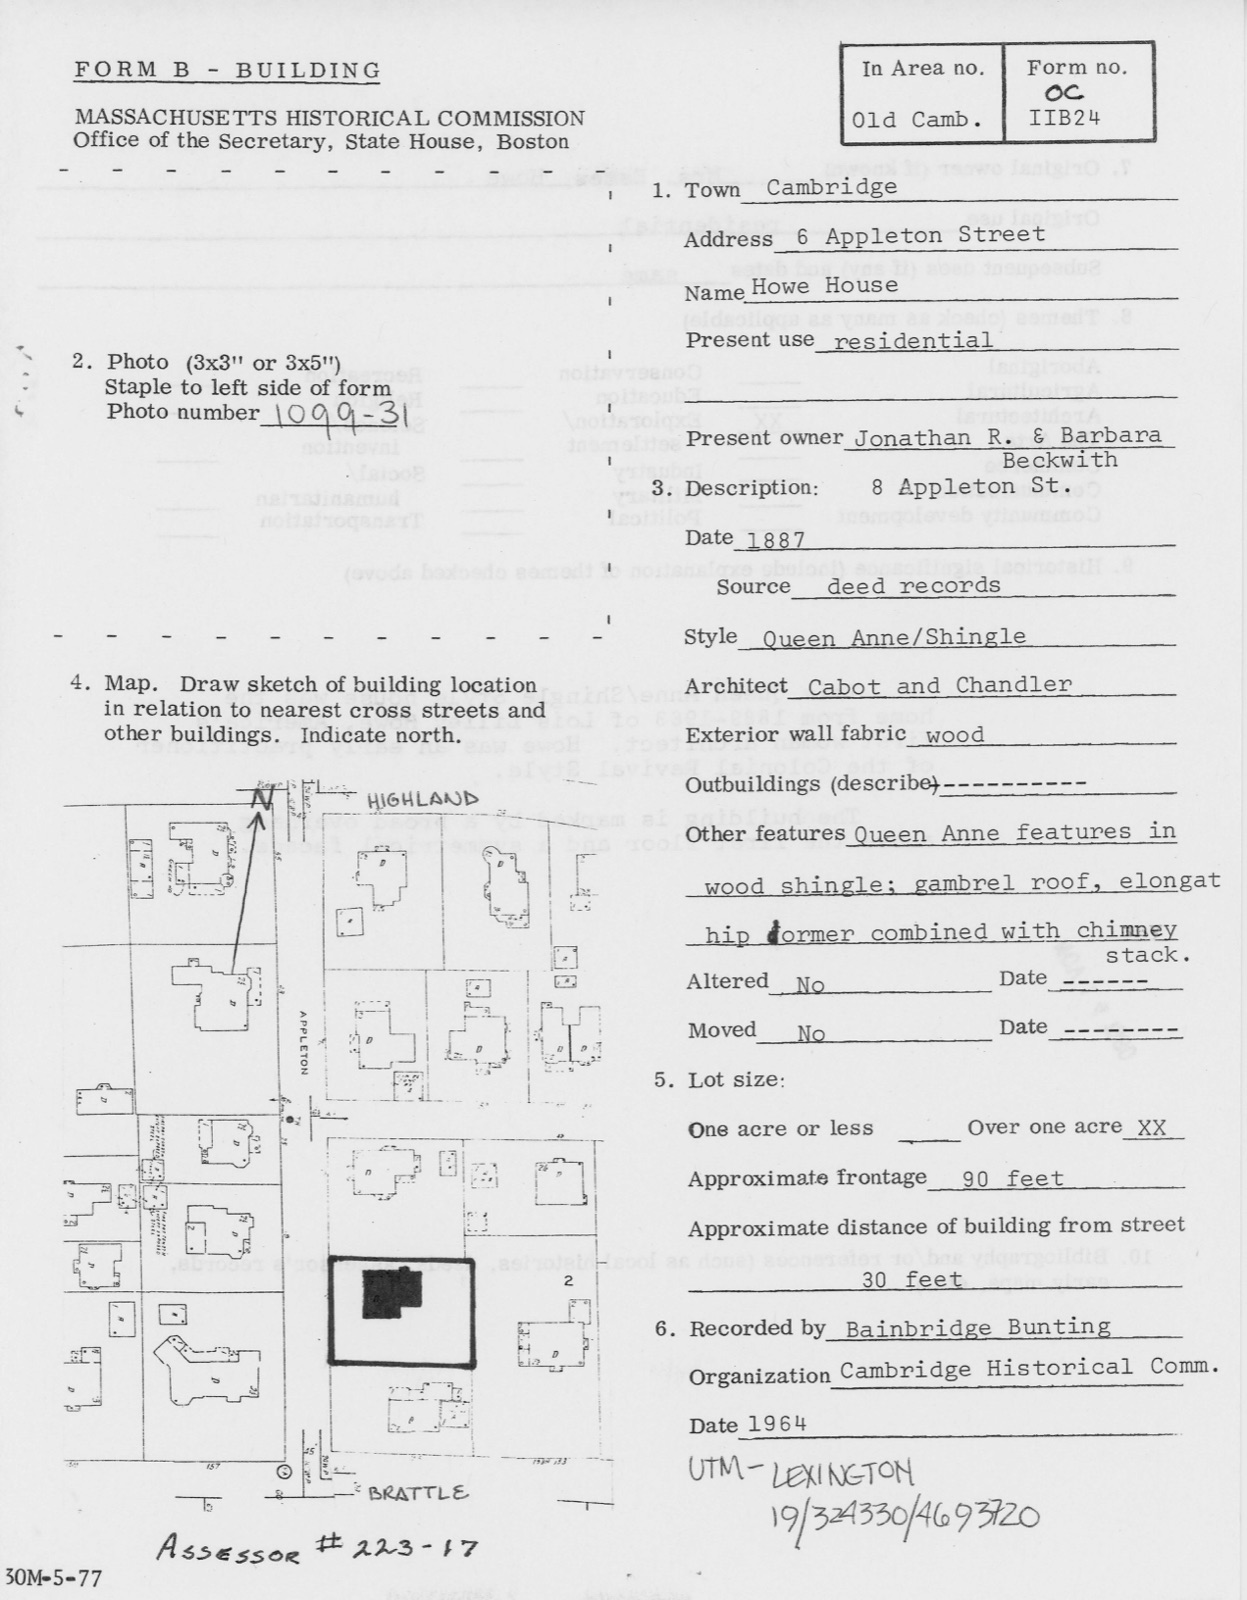 FORM B - BUILDING
In Area no.
Form no.
OC
Old Camb.
IIB24
MASSACHUSETTS HISTORICAL COMMISSION
Office of the Secretary, State House, Boston
1. Town Cambridge
Address 6 Appleton Street
Name Howe House
Present use residential
2. Photo (3x3" or 3x5")
Staple to left side of form
Photo number 1099-31
Present owner Jonathan R. & Barbara
Beckwith
3. Description: 8 Appleton St.
Date 1887
Source deed records
Style Queen Anne/Shingle
Architect Cabot and Chandler
Exterior wall fabric wood
Outbuildings (describe) -----------
Other features Queen Anne features in
wood shingle; gambrel roof, elongat
hip dormer combined with chimney
stack.
Altered No Date ------
Moved No Date --------
4. Map. Draw sketch of building location
in relation to nearest cross streets and
other buildings. Indicate north.
N
HIGHLAND
APPLETON
2
BRATTLE
ASSESSOR # 223-17
5. Lot size:
One acre or less Over one acre XX
Approximate frontage 90 feet
Approximate distance of building from street
30 feet
6. Recorded by Bainbridge Bunting
Organization Cambridge Historical Comm.
Date 1964
UTM- LEXINGTON
19/324330/4693720
30M-5-77